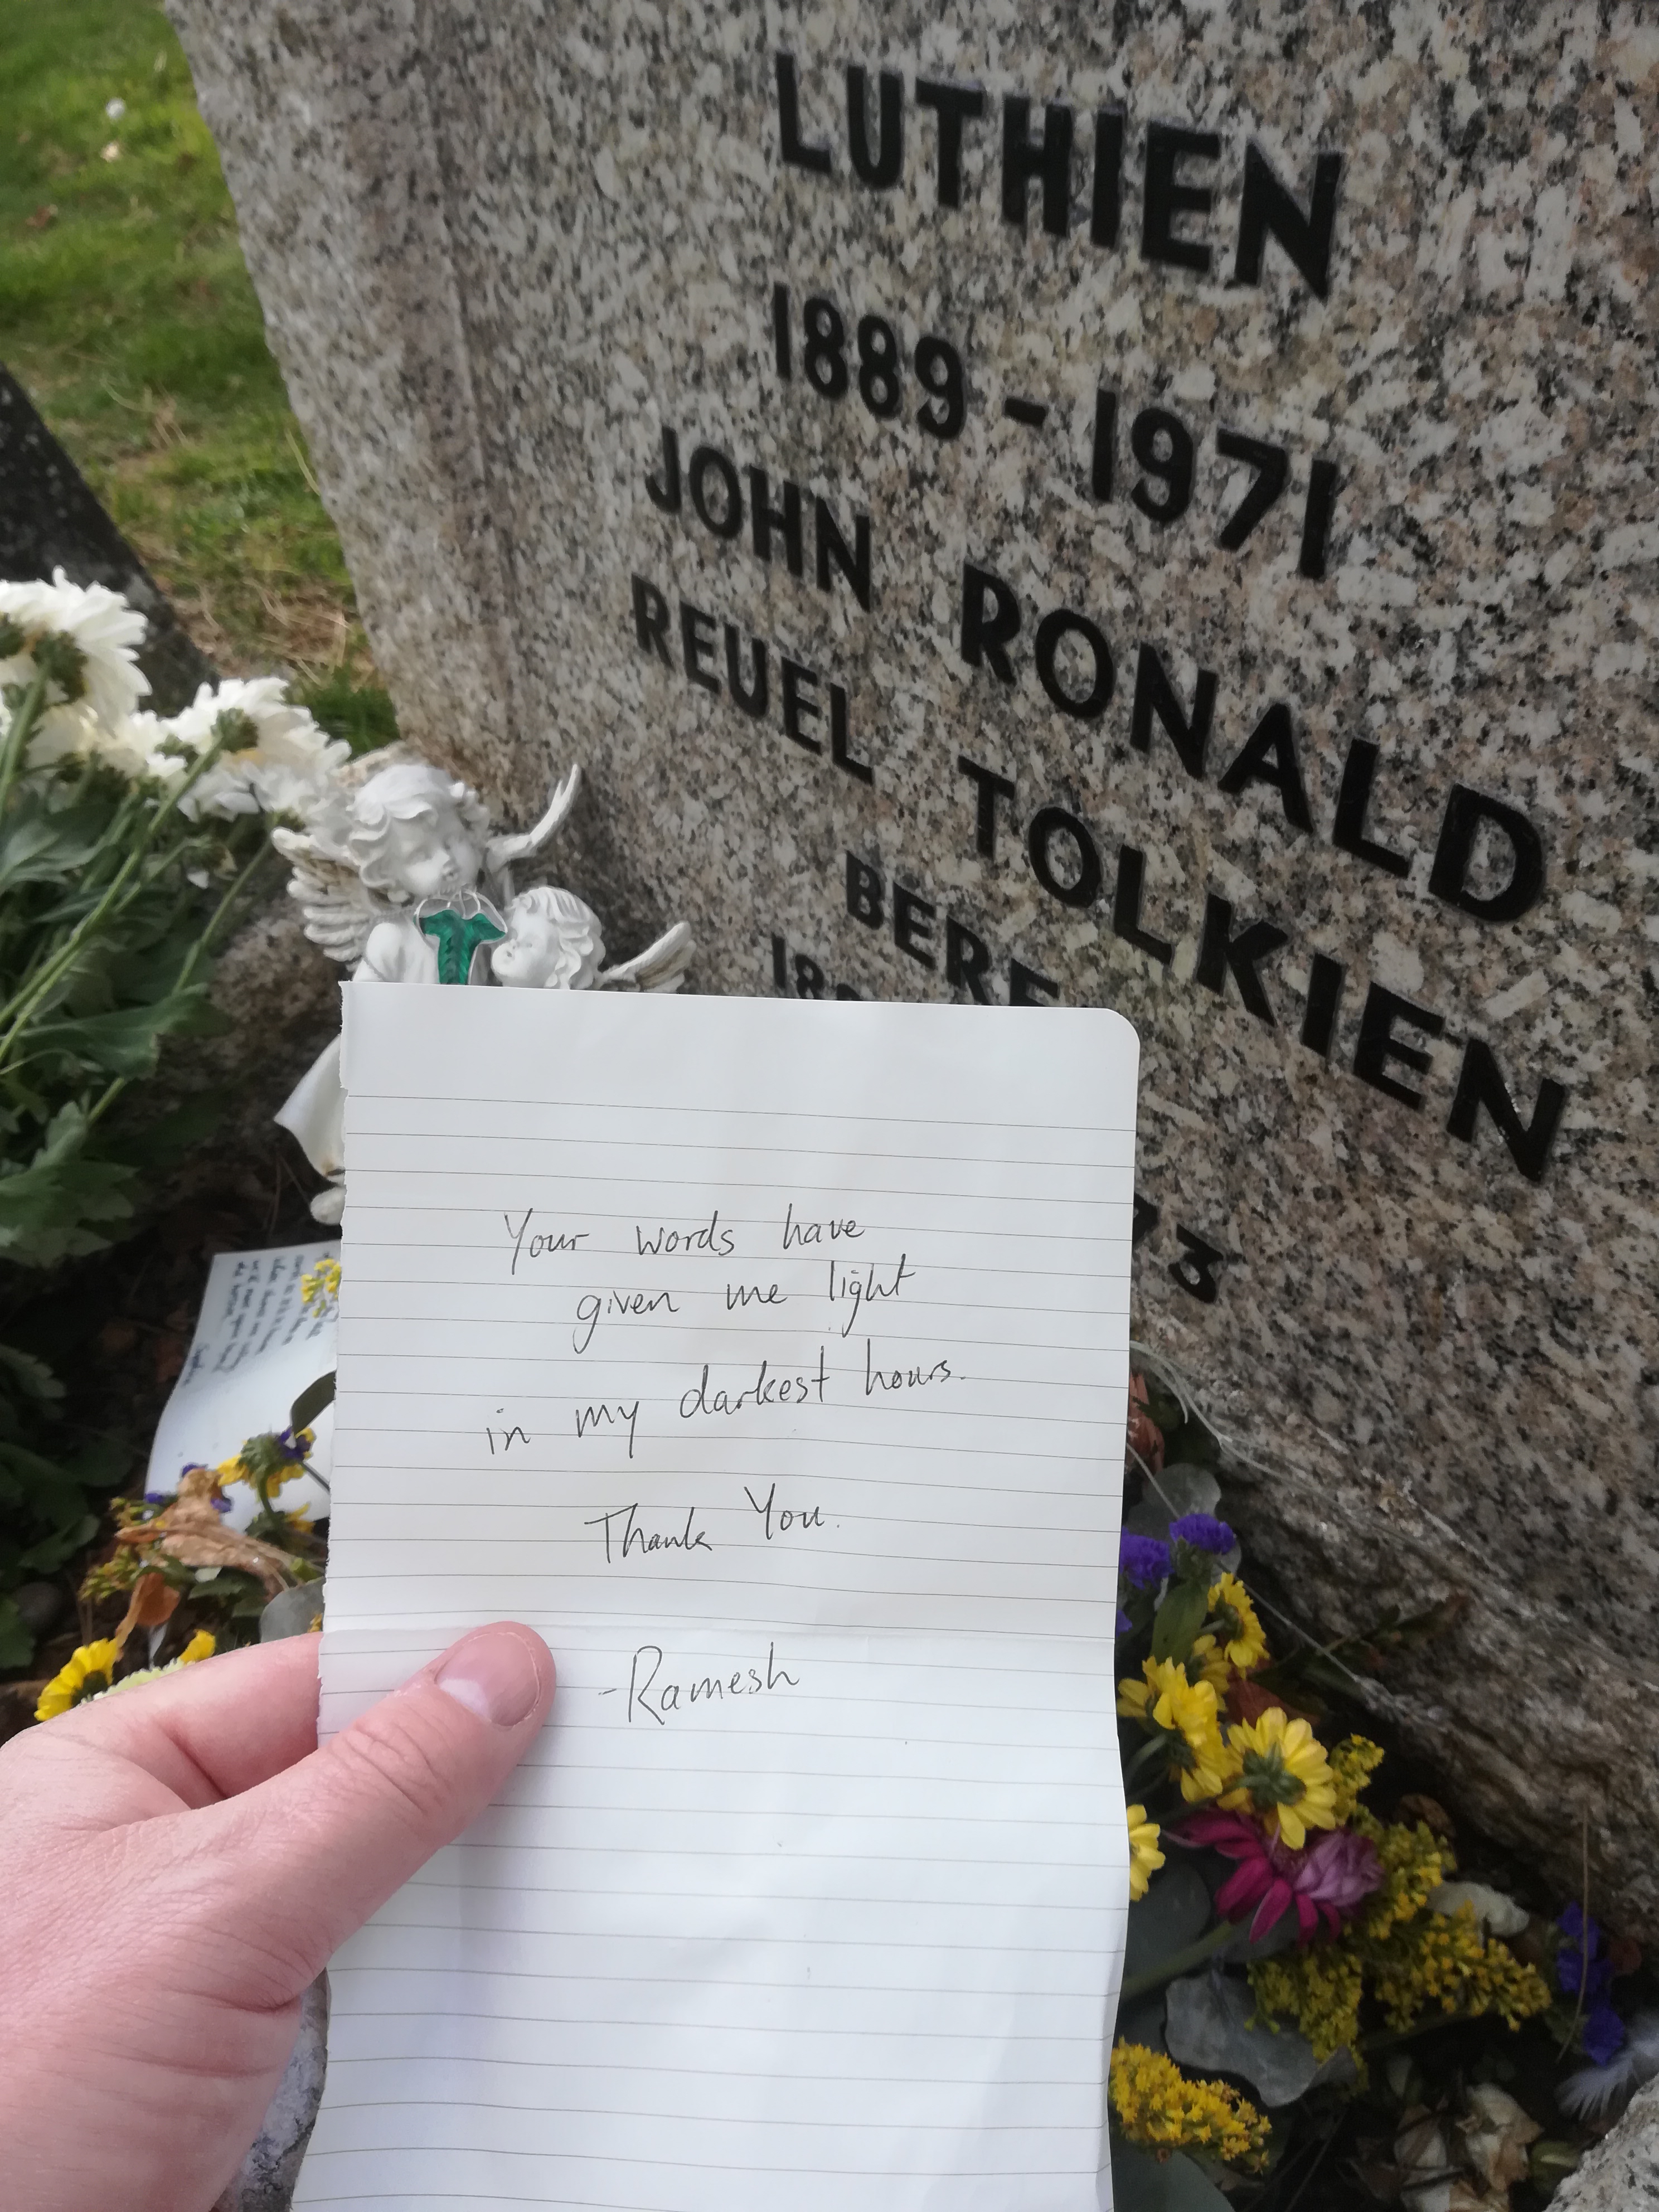 LUTHIEN
1889 – 1971
JOHN RONALD
REUEL TOLKIEN
BERE
18
73
Your words have
given me light
in my darkest hours.
Thank You.
-Ramesh